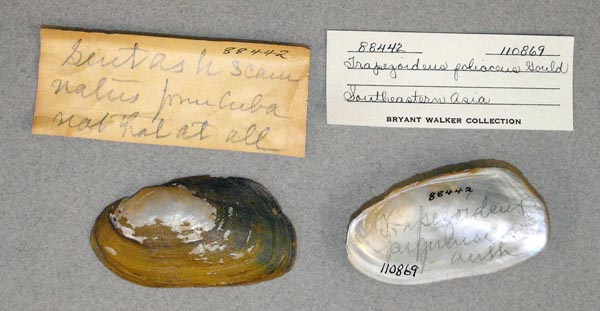 88442
Sent as U scam
natus from Cuba
not that at all
88442 110869
Trapezoideus foliaceus Gould
Southeastern Asia
BRYANT WALKER COLLECTION
88442
Trapezoideus
110869